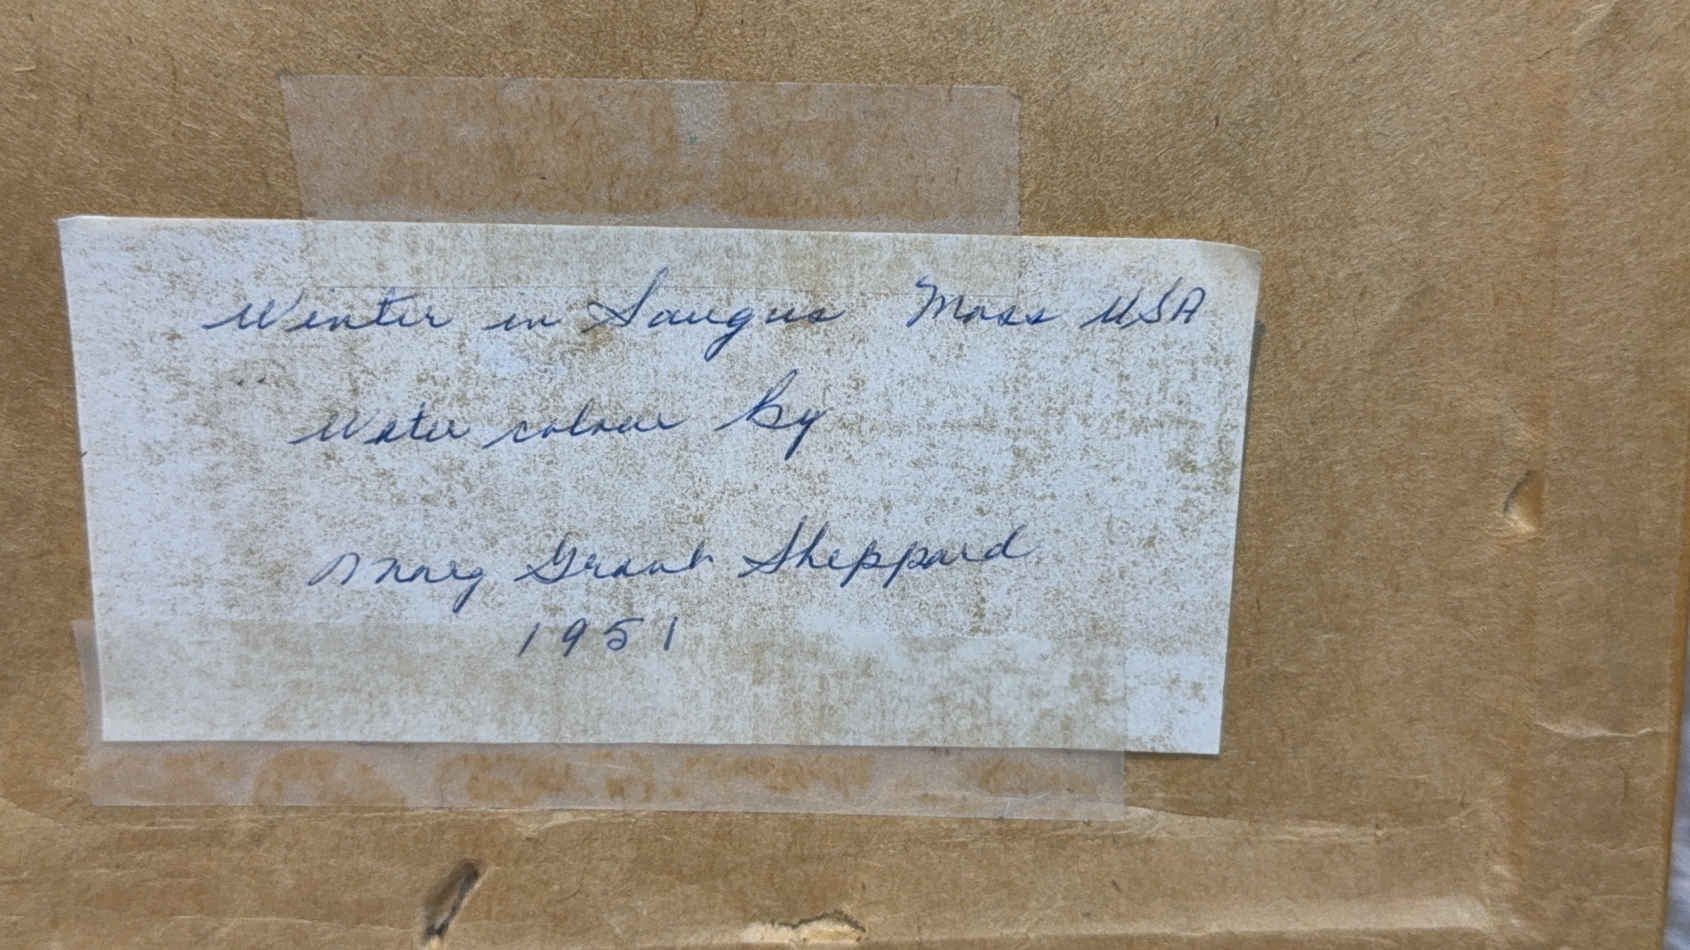 Winter in Saugus Mass USA
Water colour by
Marg Grant Sheppard
1951